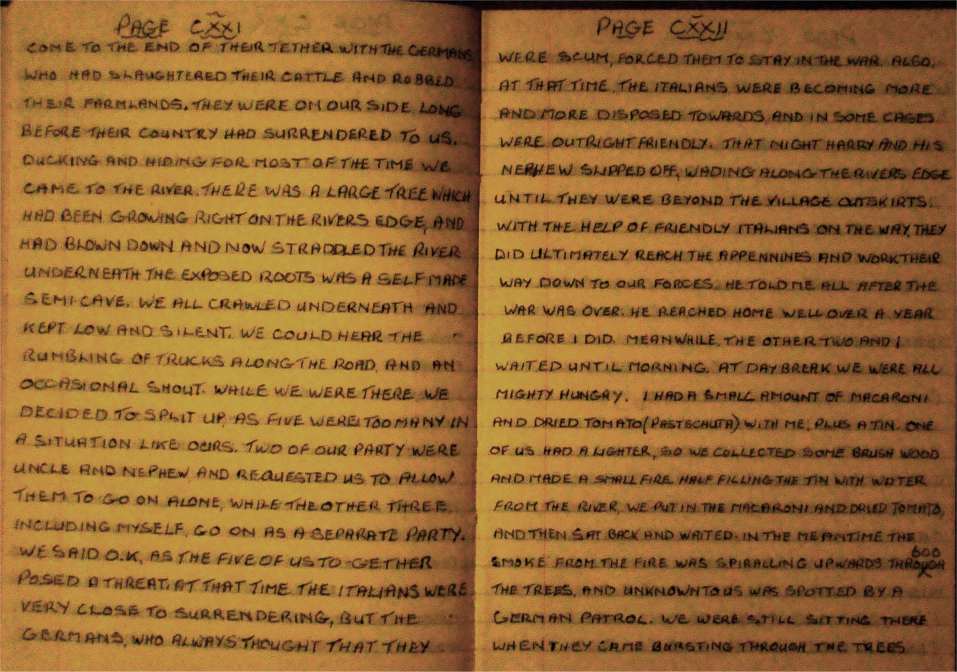 PAGE CXXI
COME TO THE END OF THEIR TETHER WITH THE GERMANS
WHO HAD SLAUGHTERED THEIR CATTLE AND ROBBED
THEIR FARMLANDS. THEY WERE ON OUR SIDE LONG
BEFORE THEIR COUNTRY HAD SURRENDERED TO US.
DUCKING AND HIDING FOR MOST OF THE TIME WE
CAME TO THE RIVER. THERE WAS A LARGE TREE WHICH
HAD BEEN GROWING RIGHT ON THE RIVERS EDGE, AND
HAD BLOWN DOWN AND NOW STRADDLED THE RIVER
UNDERNEATH THE EXPOSED ROOTS WAS A SELF MADE
SEMI-CAVE. WE ALL CRAWLED UNDERNEATH AND
KEPT LOW AND SILENT. WE COULD HEAR THE
RUMBLING OF TRUCKS ALONG THE ROAD, AND AN
OCCASIONAL SHOUT. WHILE WE WERE THERE WE
DECIDED TO SPLIT UP, AS FIVE WERE TOO MANY IN
A SITUATION LIKE OURS. TWO OF OUR PARTY WERE
UNCLE AND NEPHEW AND REQUESTED US TO ALLOW
THEM TO GO ON ALONE, WHILE THE OTHER THREE,
INCLUDING MYSELF, GO ON AS A SEPARATE PARTY.
WE SAID O.K, AS THE FIVE OF US TO-GETHER
POSED A THREAT. AT THAT TIME THE ITALIANS WERE
VERY CLOSE TO SURRENDERING, BUT THE
GERMANS, WHO ALWAYS THOUGHT THAT THEY
PAGE CXXII
WERE SCUM, FORCED THEM TO STAY IN THE WAR. ALSO,
AT THAT TIME, THE ITALIANS WERE BECOMING MORE
AND MORE DISPOSED TOWARDS, AND IN SOME CASES
WERE OUTRIGHT FRIENDLY. THAT NIGHT HARRY AND HIS
NEPHEW SLIPPED OFF, WADING ALONG THE RIVERS EDGE
UNTIL THEY WERE BEYOND THE VILLAGE OUTSKIRTS.
WITH THE HELP OF FRIENDLY ITALIANS ON THE WAY, THEY
DID ULTIMATELY REACH THE APPENNINES AND WORK THEIR
WAY DOWN TO OUR FORCES. HE TOLD ME ALL AFTER THE
WAR WAS OVER. HE REACHED HOME WELL OVER A YEAR
BEFORE I DID. MEANWHILE, THE OTHER TWO AND I
WAITED UNTIL MORNING. AT DAYBREAK WE WERE ALL
MIGHTY HUNGRY. I HAD A SMALL AMOUNT OF MACARONI
AND DRIED TOMATO (PASTSCHUTA) WITH ME, PLUS A TIN. ONE
OF US HAD A LIGHTER, SO WE COLLECTED SOME BRUSH WOOD
AND MADE A SMALL FIRE. HALF FILLING THE TIN WITH WATER
FROM THE RIVER, WE PUT IN THE MACARONI AND DRIED TOMATO,
AND THEN SAT BACK AND WAITED. IN THE MEANTIME THE
600
SMOKE FROM THE FIRE WAS SPIRALLING UPWARDS THROUGH
THE TREES, AND UNKNOWN TO US WAS SPOTTED BY A
GERMAN PATROL. WE WERE STILL SITTING THERE
WHEN THEY CAME BURSTING THROUGH THE TREES